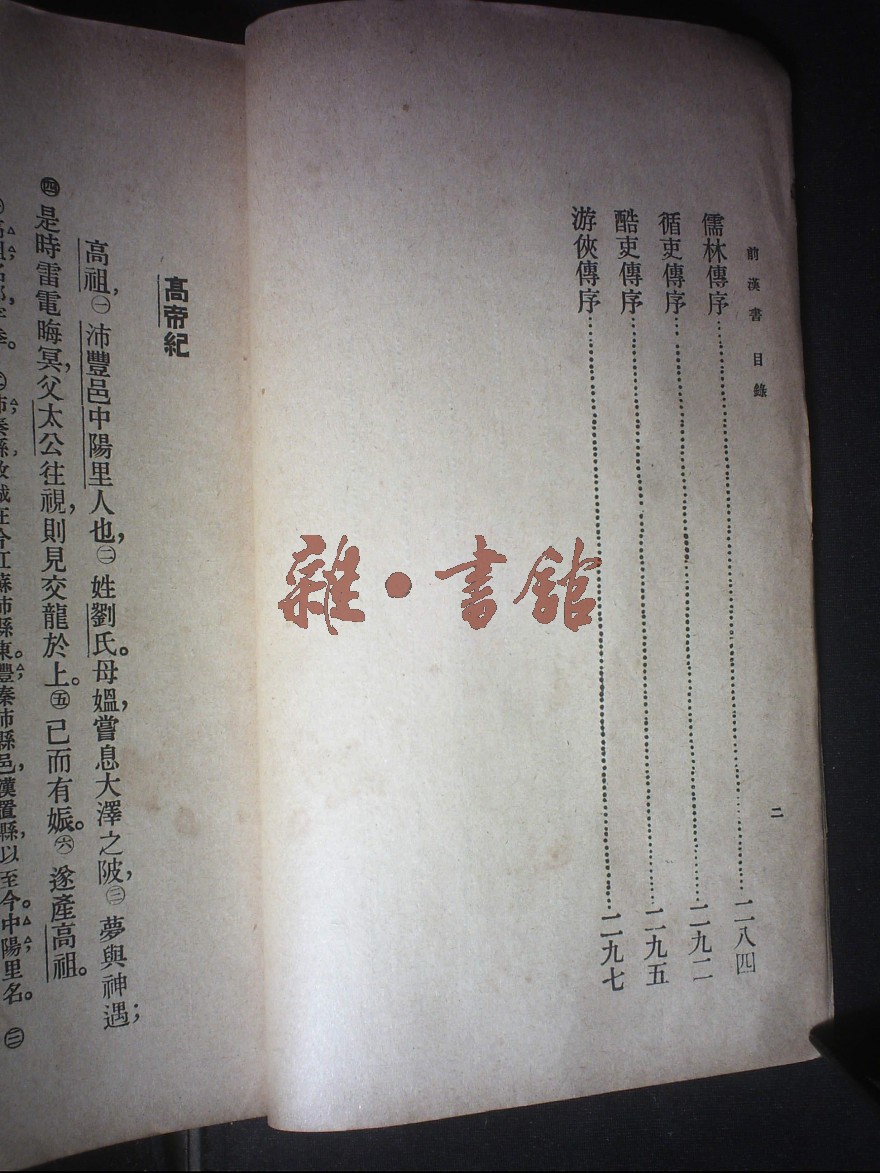 前漢書 目錄
二
儒林傳序……二八四
循吏傳序……二九二
酷吏傳序……二九五
游俠傳序……二九七
雜·書館
高帝紀
高祖，㊀沛豐邑中陽里人也，㊁姓劉氏。母媼，嘗息大澤之陂，㊂夢與神遇；
㊃是時雷電晦冥，父太公往視，則見交龍於上。㊄已而有娠。㊅遂產高祖。
秦縣，故城在今江蘇沛縣東。豐，秦沛縣邑，漢置縣，以至今。中陽，里名。㊂